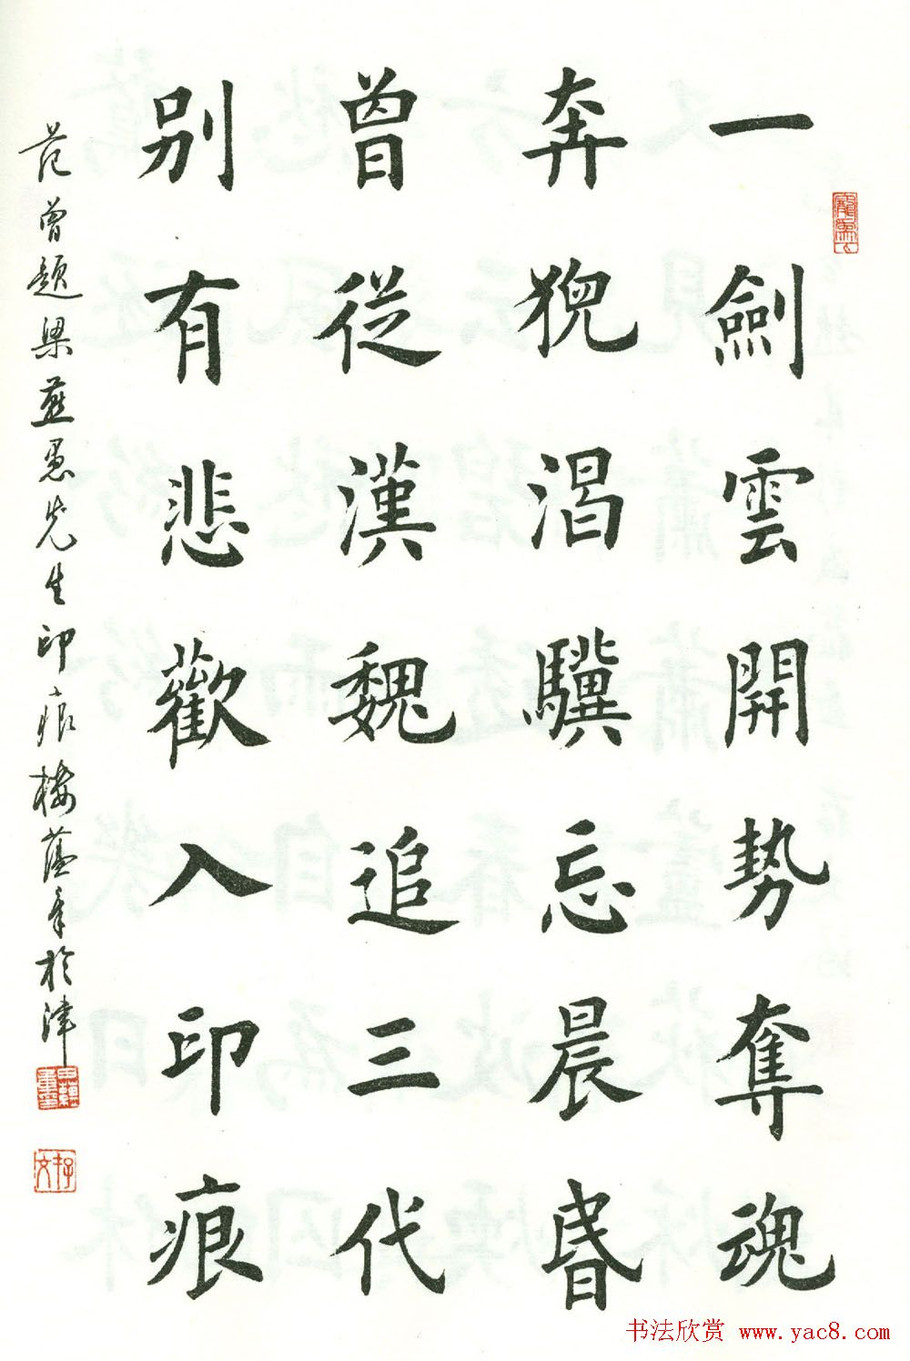 一劍雲開勢奪魂
奔猊渴驥忘晨昬
曾從漢魏追三代
别有悲歡入印痕
范曾題梁益愚先生印痕樓蕴章於津
书法欣赏 www.yac8.com